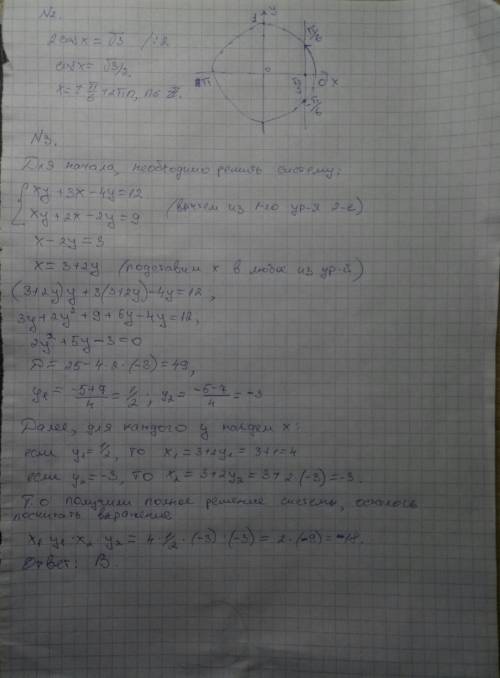 №2.
2cosx = √3 /:2
cosx = √3/2
x = ± π/6 + 2πn, n∈ Z.
y
1
π/6
π
0
0 x
-π/6
№3.
Для начала, необходимо решить систему:
{ xy + 3x - 4y = 12
xy + 2x - 2y = 9 (вычтем из 1-го ур-я 2-е)
x - 2y = 3
x = 3 + 2y (подставим x в любое из ур-й)
(3+2y)y + 3(3+2y) - 4y = 12,
3y + 2y² + 9 + 6y - 4y = 12,
2y² + 5y - 3 = 0
D = 25 - 4·2·(-3) = 49,
y₁ = -5+7/4 = 1/2, y₂ = -5-7/4 = -3
Далее, для каждого y найдем x:
если y₁ = 1/2, то x₁ = 3+2y₁ = 3+1 = 4
если y₂ = -3, то x₂ = 3+2y₂ = 3+2·(-3) = -3.
Т.о получили полное решение системы, осталось
посчитать выражение
x₁·y₁·x₂·y₂ = 4·1/2·(-3)·(-3) = 2·(-9) = -18.
Ответ: В.